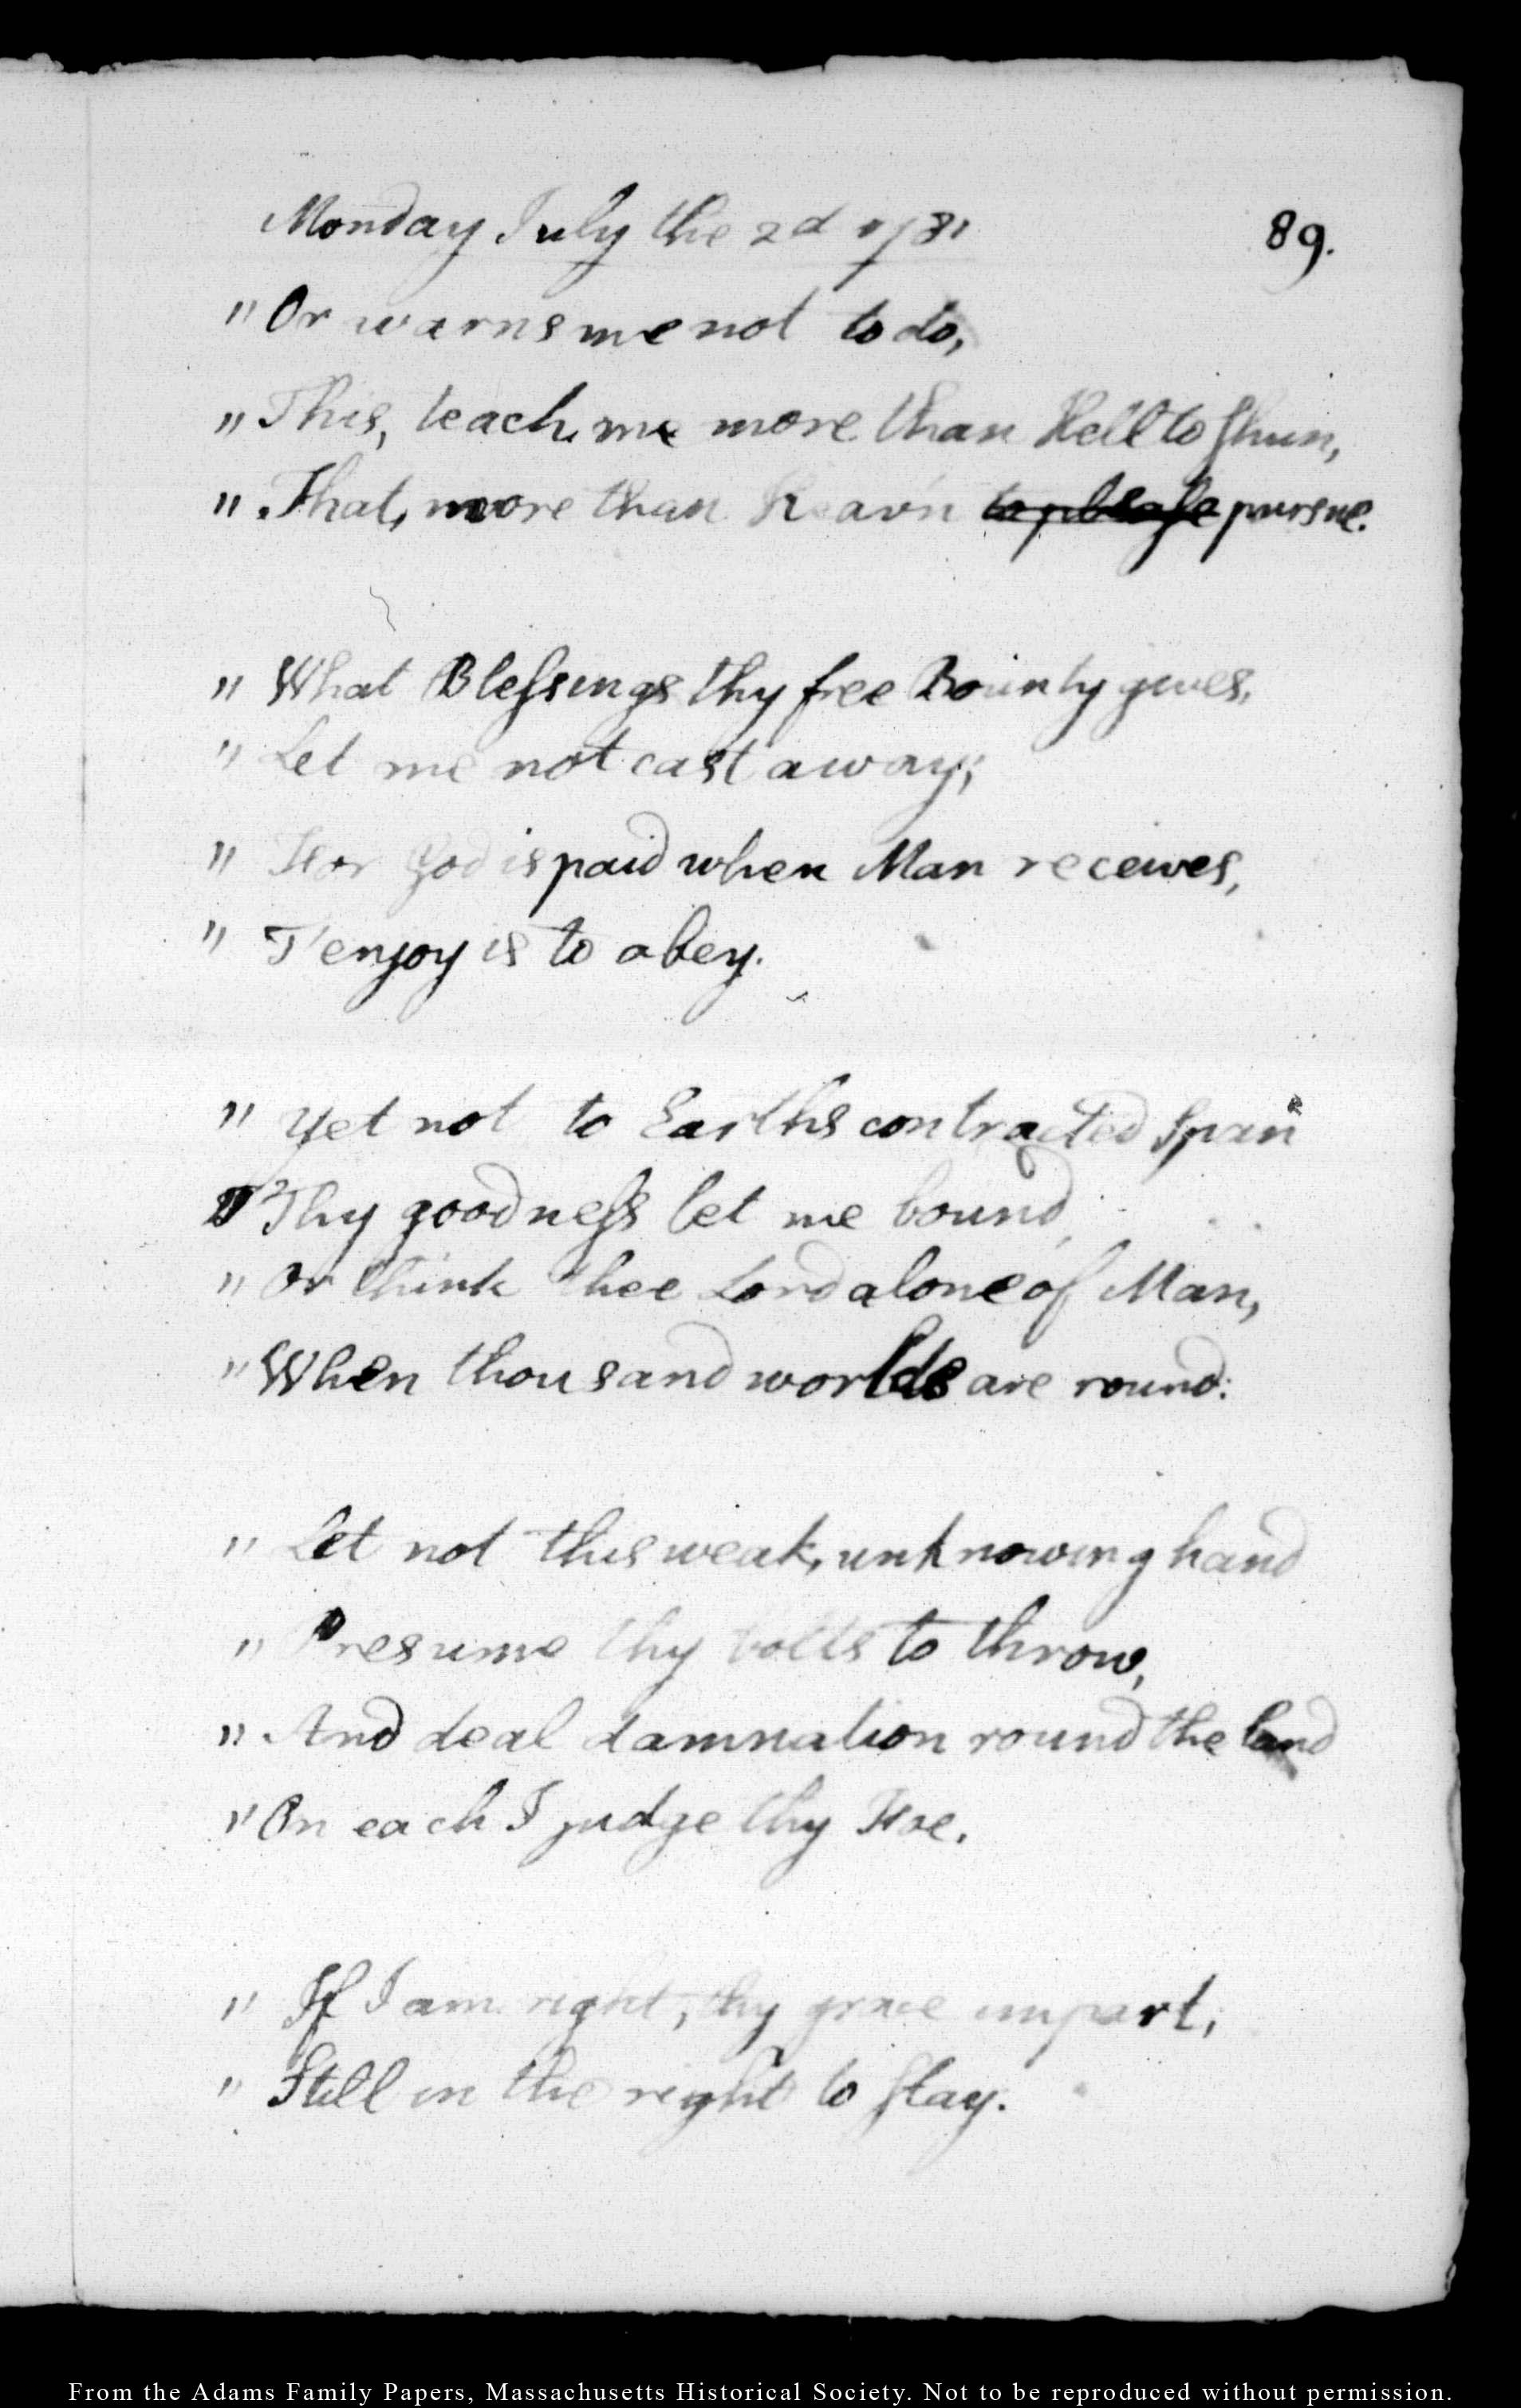 Monday July the 2d 1781 89.
" Or warns me not to do,
" This, teach me more than Hell to shun,
" That, more than Heav'n to please pursue.
" What Blessings thy free Bounty gives,
" Let me not cast away;
" For God is paid when Man receives,
" T'enjoy is to obey.
" Yet not to Earths contracted Span
" Thy goodness let me bound,
" Or think thee Lord alone of Man,
" When thousand worlds are round:
" Let not this weak, unknowing hand
" Presume thy bolts to throw,
" And deal damnation round the land
" On each I judge thy Foe.
" If I am right, thy grace impart,
" Still in the right to stay.
From the Adams Family Papers, Massachusetts Historical Society. Not to be reproduced without permission.